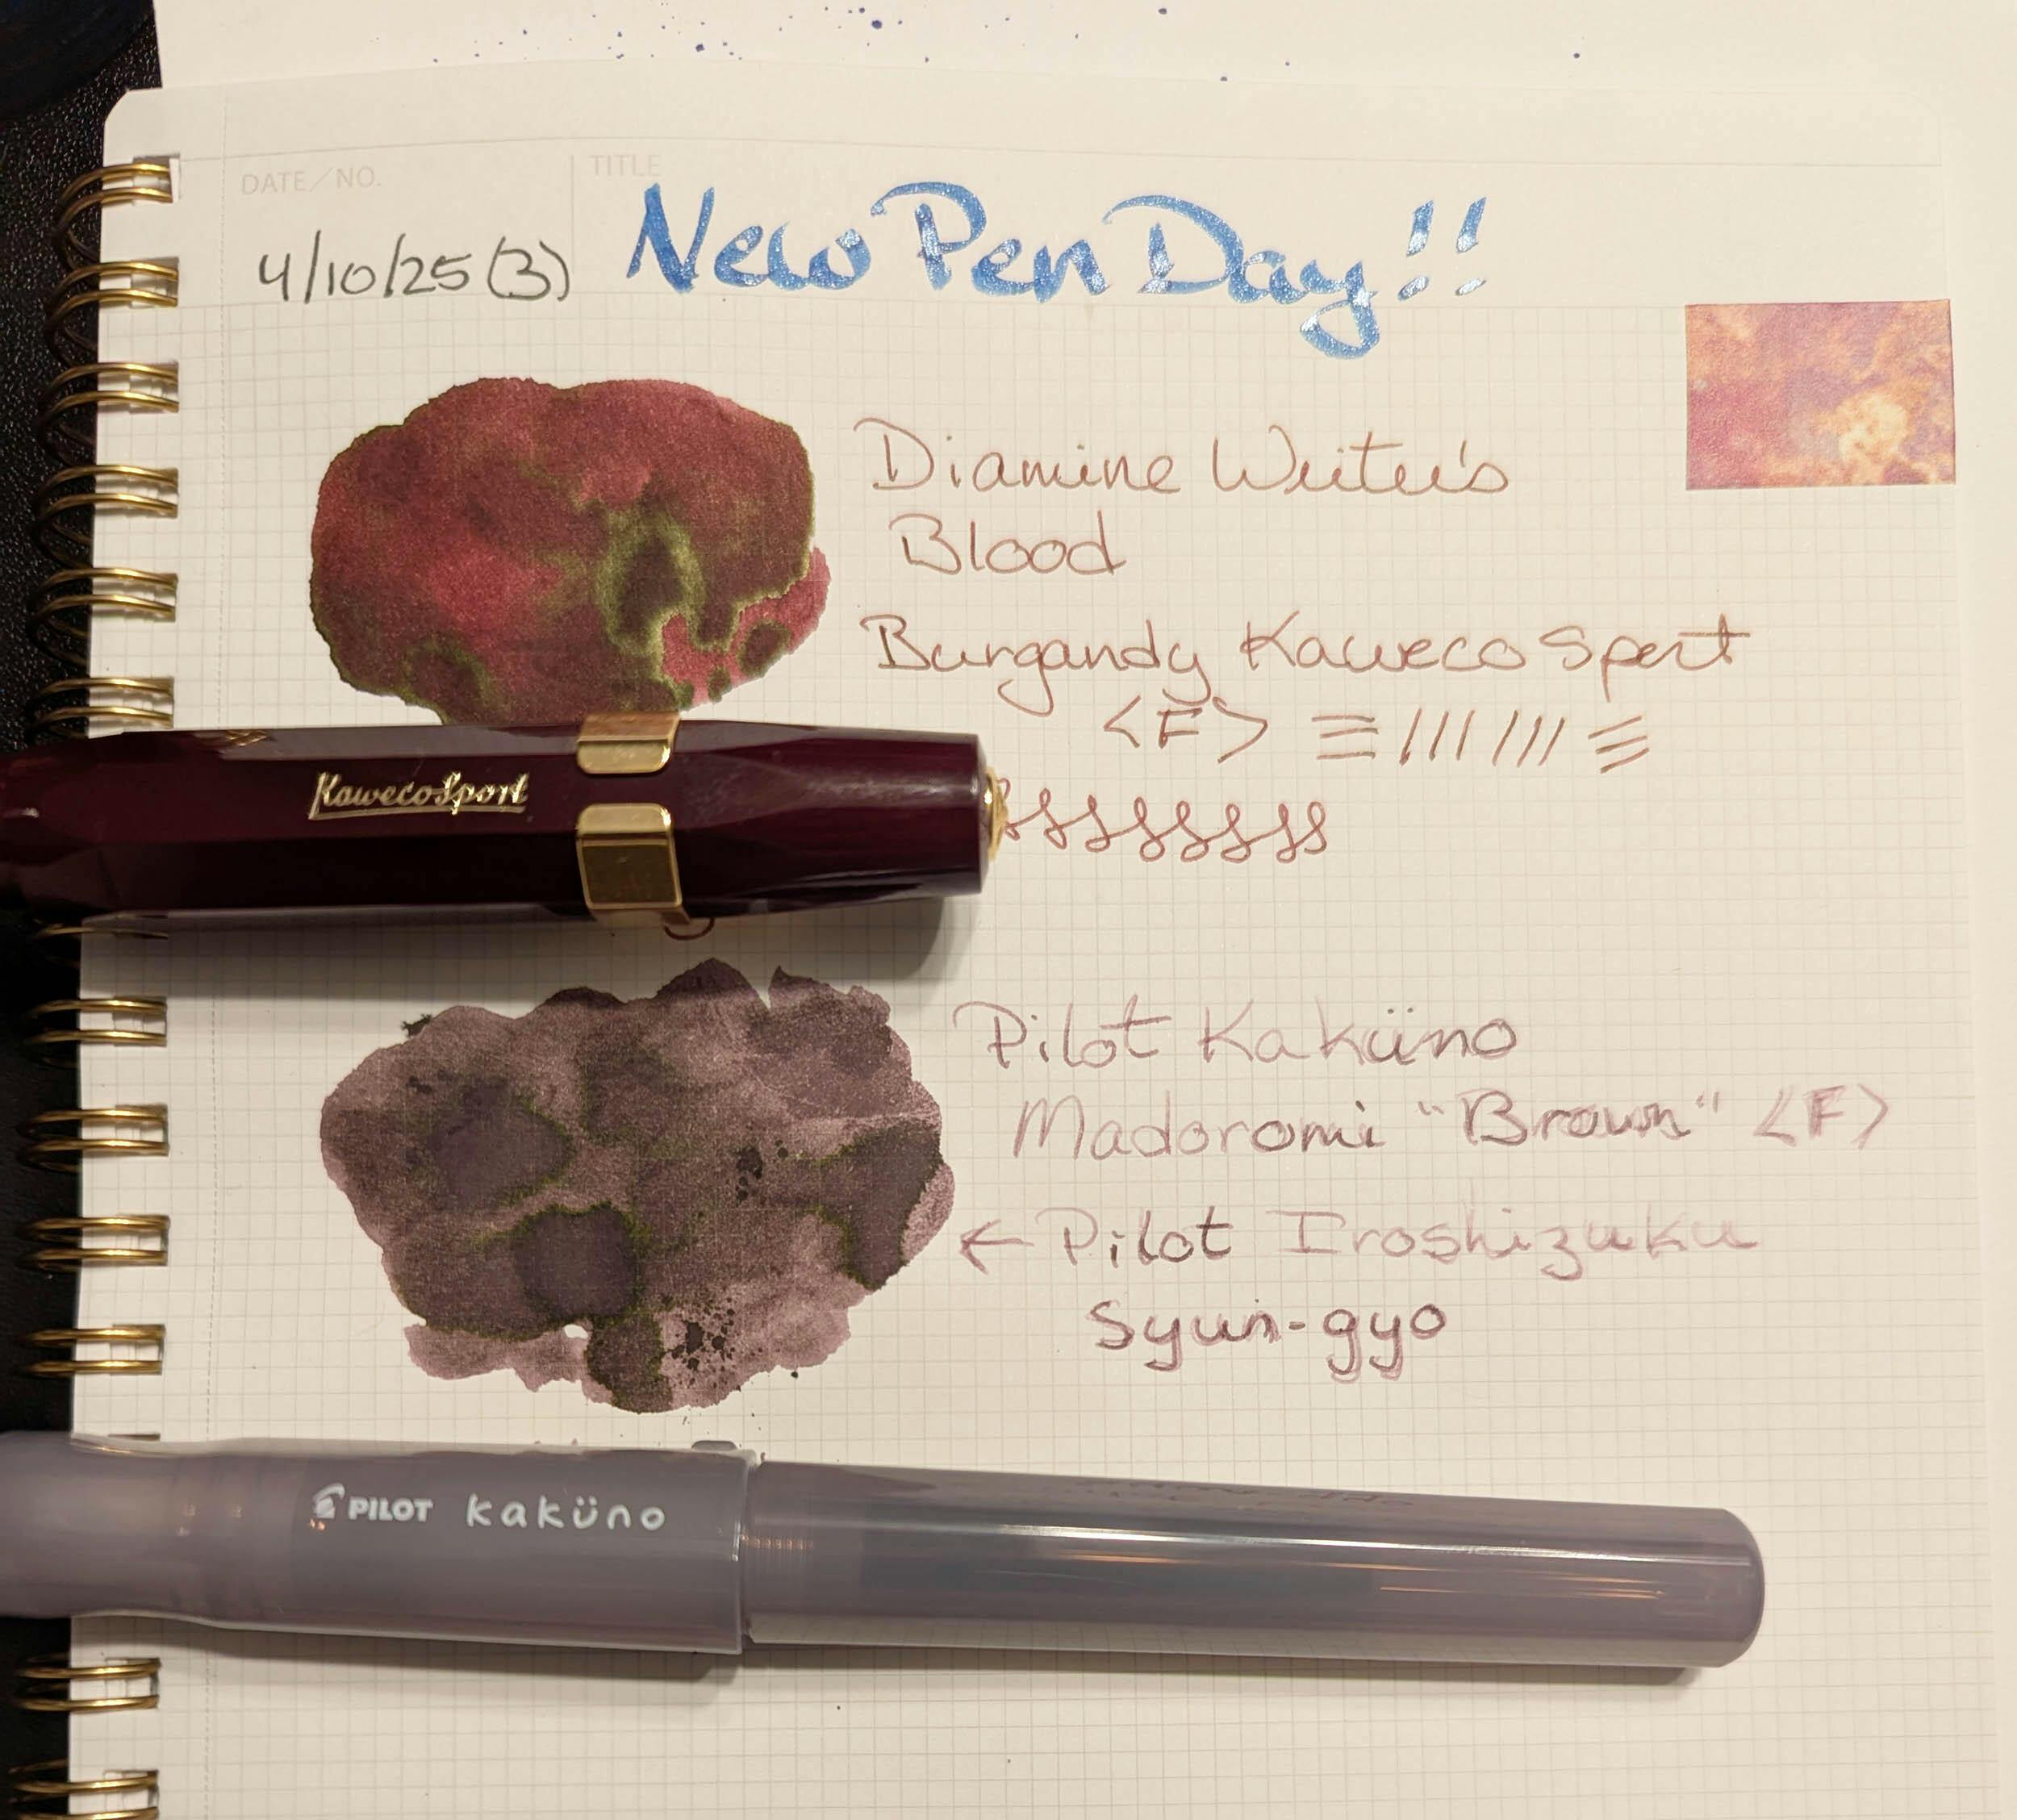 DATE/NO.
TITLE
4/10/25(3)
New Pen Day!!
Diamine Writer's
Blood
Burgandy Kaweco Sport
<F>
KawecoSport
Pilot Kaküno
Madoromi "Brown" <F>
← Pilot Iroshizuku
Syun-gyo
PILOT kaküno